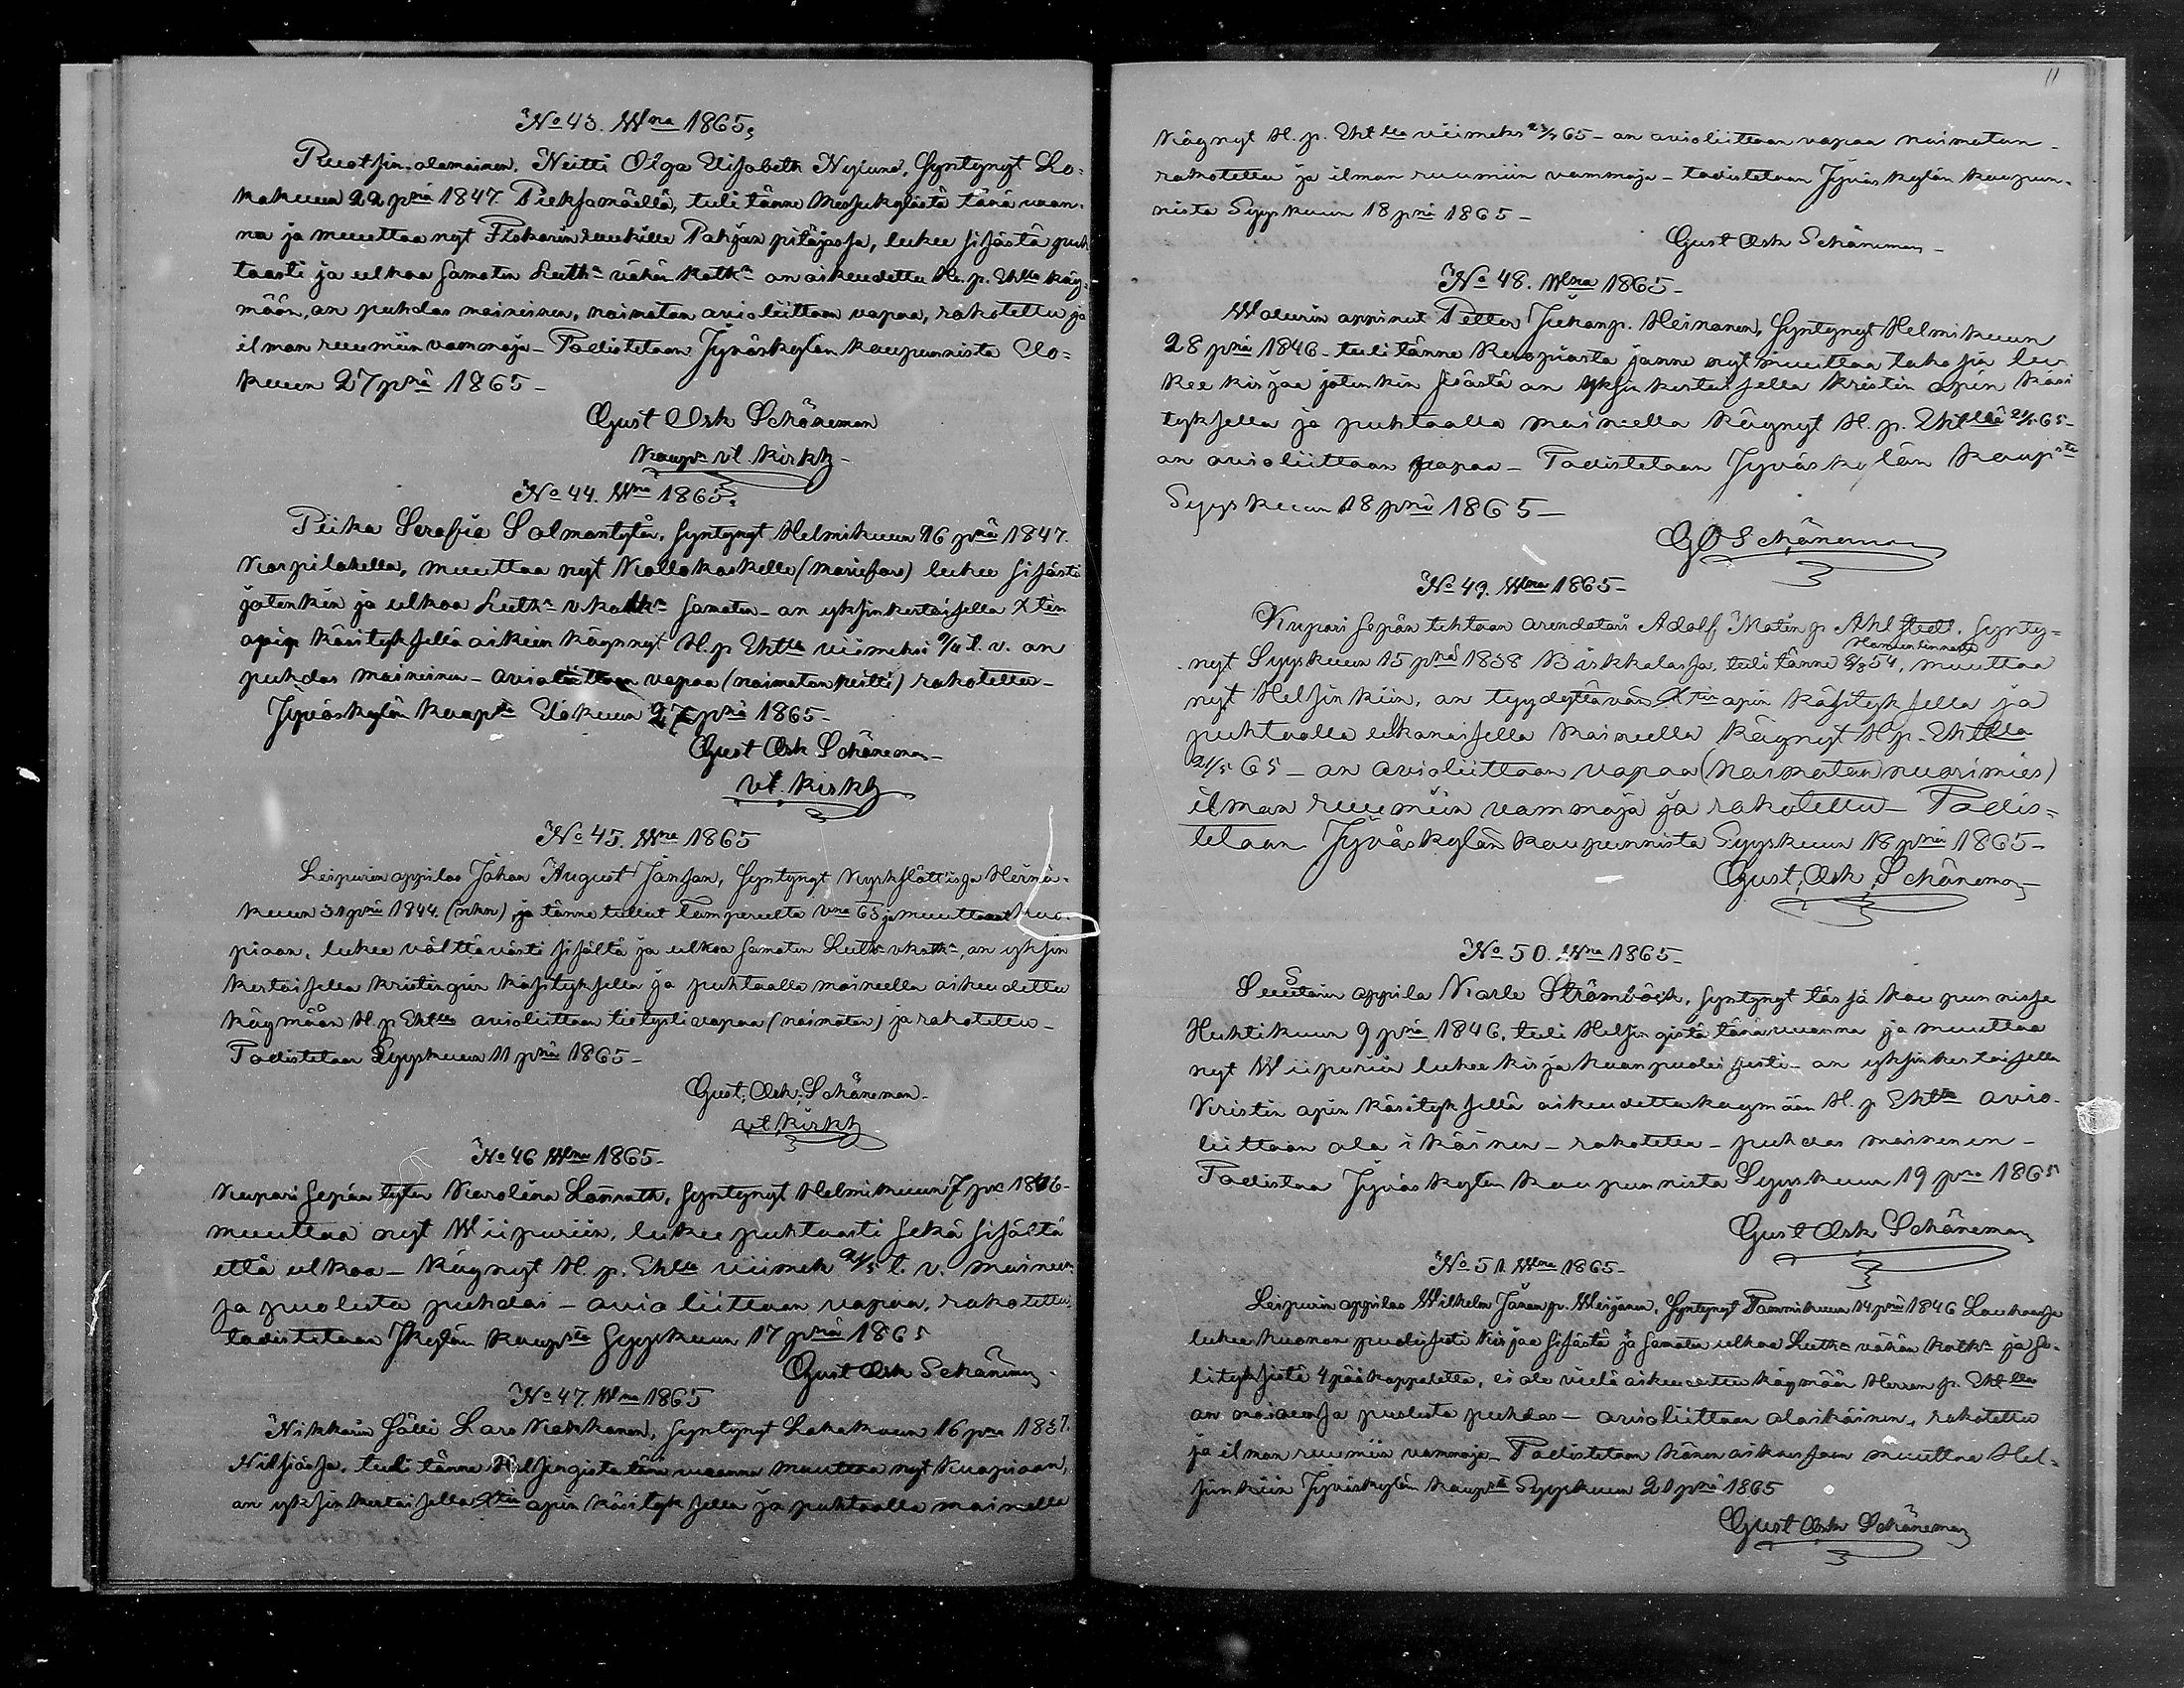 No 43. Wna 1865,
Ruotsin alamainen, Neitti Olga Elisabeth Nylund, syntynyt Lo-
kakuun 22 pnä 1847. Pieksämäellä, tuli tänne Messukylästä tänä vuon-
na ja muuttaa nyt Fiskarin ruukille Pohjan pitäjässä, lukee sisästä puh
taasti ja ulkoa samaten Luth:n vähän katk:n on oikeudettu H. p. Ehtlle käy-
mään, on puhdas maineinen, naimaton avioliittoon vapaa, rokotettu ja
ilman ruumiin vammoja - Todistetaan Jyväskylän kaupunnista Elo-
kuun 27 pnä 1865 -
Gust Osk Schöneman
kaupn vt. kirkh -
No 44. Wna 1865,
Piika Serafia Salmantytär, syntynyt Helmikuun 16 pnä 1847.
Korpilahella, muuttaa nyt (Mariefors) lukee sisästä
jotenkin ja ulkoa Luth:n v. katk:n samaten - on yksinkertaisella Xtin
opin käsityksellä oikein käynnyt H. p Ehtlla viimeksi t. v. on
puhdas maineinen - avioliittoon vapaa (naimaton neitti) rokotettu -
Jyväskylän kaupsta Elokuun 27 pnä 1865 -
Gust Osk Schöneman -
vt. kirkh
No 45. Wna 1865
Leipurin oppilas Johan August Janson, syntynyt Kyrkslätt'issä Heinä-
kuun 31 pnä 1844. ja tänne tullut Tampereelta vna 65 ja muuttaa Kuo-
pioon, lukee välttävästi sisältä ja ulkoa samaten Luth:n v katk:n, on yksin
kertaisella kristinopin käsityksellä ja puhtaalla maineella oikeudettu
käymään H. p Ehtlle avioliittoon tietysti vapaa (naimaton) ja rokotettu -
Todistetaan Syyskuun 11 pnä 1865 -
Gust, Osk, Schöneman -
vt kirkh
No 46 Wna 1865 -
Kuparisepän tytär Karolina Lönnroth, syntynyt Helmikuun 7 pnä 1846 -
muuttaa nyt Wiipuriin, lukee puhtaasti sekä sisältä
että ulkoa - käynyt H. p. Ehtlla viimek 21/5 t. v. maineen
sa puolesta puhdas - avioliittoon vapaa, rokotettu,
todistetaan Jkylän kaupsta Syyskuun 17 pnä 1865
Gust Osk Schöneman -
No 47. Wna 1865
Nikkarin sälli Lars Kakkonen, syntynyt Lokakuun 16 pnä 1837.
Nilsiässä, tuli tänne Helsingistä tänä vuonna muuttaa nyt Kuopioon,
on yksinkertaisella Xtin opin käsityksellä ja puhtaalla maineella
11
Käynyt H. p. Ehtlla viimeks 21/5 65 - on avioliittoon vapaa naimaton -
rokotettu ja ilman ruumiin vammoja - todistetaan Jyväskylän kaupun-
nista Syyskuun 18 pnä 1865 -
Gust Osk Schöneman -
No 48. Wna 1865 -
Walurin oppinut Petter Juhanp. Heinonen, syntynyt Helmikuun
28 pnä 1846 - tuli tänne Kuopiosta jonne nyt muuttaa takasin lu-
kee kirjaa jotenkin sisästä on yksinkertaisella kristin opin käsi
tyksellä ja puhtaalla maineella käynyt H. p. Ehtllä 21/5 65 -
on avioliittoon vapaa - Todistetaan Jyväskylän kaupsta
Syyskuun 18 pnä 1865 -
GO Schöneman
No 49. Wna 1865 -
Kupari sepän tehtaan arendatori Adolf Matin p Ahlstedt. synty-
nyt Syyskuun 15 pnä 1838 Birkkalassa, tuli tänne Hämeenlinnasta 8/8 54, muuttaa
nyt Helsinkiin, on tyydyttävän Xtin opin käsityksellä ja
puhtaalla ulkonaisella maineella käynyt H p. Ehtlla
21/5 65 - on avioliittoon vapaa (Naimaton nuorimies)
ilman ruumiin vammoja ja rokotettu - Todis-
tetaan Jyväskylän kaupunnista Syyskuun 18 pnä 1865 -
Gust, Osk, Schöneman -
No 50. Wna 1865 -
Suutarin oppila Karle Strömbäck, syntynyt tässä kaupunnissa
Huhtikuun 9 pnä 1846, tuli Helsingistä tänä vuonna ja muuttaa
nyt Wiipuriin lukee kirjaa kuanpuolisesti - on yksinkertaisella
Kristin opin käsityksellä oikeudettu käymään H. p Ehtlle avio-
liittoon ala ikäinen - rokotettu - puhdas maineinen -
Todistaa Jyväskylän kaupunnista Syyskuun 19 pnä 1865
Gust Osk Schöneman
No 51. Wna 1865 -
Leipurin oppilas Wilhelm Johan p. Weijonen, syntynyt Tammikuun 14 pnä 1846 Laukaassa
lukee kuanon puolisesti kirjaa sisästä ja samaten ulkoa Luth:n vähän katk:n ja se-
lityksistä 4 pääkappaletta, ei ole vielä oikeudettu käymään Herran p. Ehtlle
on maineensa puolesta puhdas - avioliittoon alaikäinen, rokotettu
ja ilman ruumiin vammoja - Todistetaan hänen aikoessaan muuttaa Hel-
sinkiin Jyväskylän kaupsta Syyskuun 21 pnä 1865
Gust Osk Schöneman